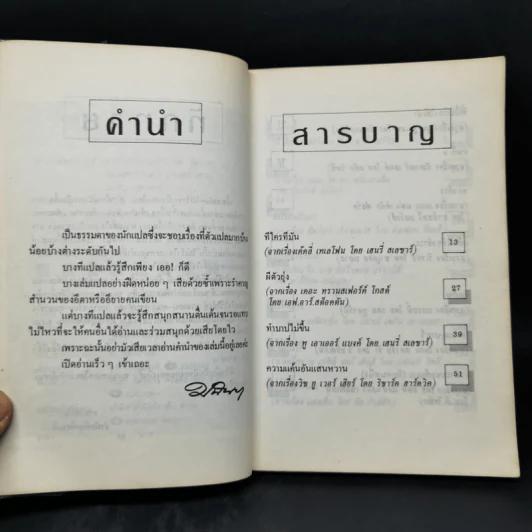 คำนำ
เป็นธรรมดาของนักแปลซึ่งจะชอบเรื่องที่ตัวแปลมาก
น้อยบ้างต่างระดับกันไป
บางทีแปลแล้วรู้สึกเพียง เออ! ก็ดี
บางเล่มแปลอย่างฝืดหน่อย ๆ เสียด้วยซ้ำเพราะรำคาญ
สำนวนของอีตาหรืออียายคนเขียน
แต่บางทีแปลแล้วจะรู้สึกสนุกสนานตื่นเต้นจนรอแทบ
ไม่ไหวที่จะให้คนอื่นได้อ่านและร่วมสนุกด้วยเสียโดยไว
เพราะฉะนั้นอย่ามัวเสียเวลาอ่านคำนำของเล่มนี้อยู่เลยค่ะ
เปิดอ่านเร็ว ๆ เข้าเถอะ
สารบาญ
ทีใครทีมัน 13
(จากเรื่องแค็คลี่ เทเลโฟน โดย เฮนรี่ สเลซาร์)
ผีตัวยุ่ง 27
(จากเรื่อง เดอะ ทรานสเฟอร์ด์ โกสต์
โดย เอฟ.อาร์.สต๊อคตัน)
ทำบาปไม่ขึ้น 39
(จากเรื่อง ทู เอาเออร์ แบงค์ โดย เฮนรี่ สเลซาร์)
ความแค้นอันแสนหวาน 51
(จากเรื่องวิช ยู เวอร์ เฮียร์ โดย ริชาร์ด ฮาร์ดวิค)